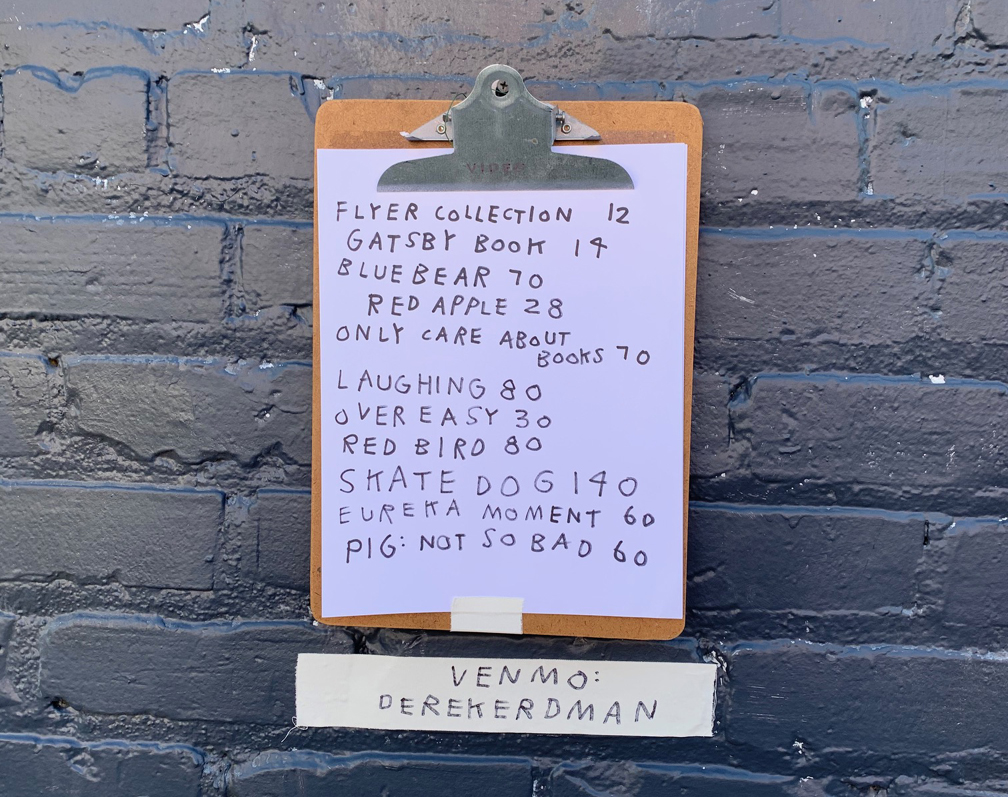 VIPER
FLYER COLLECTION 12
GATSBY BOOK 14
BLUE BEAR 70
RED APPLE 28
ONLY CARE ABOUT
BOOKS 70
LAUGHING 80
OVER EASY 30
RED BIRD 80
SKATE DOG 140
EUREKA MOMENT 60
PIG: NOT SO BAD 60
VENMO:
DEREKERDMAN